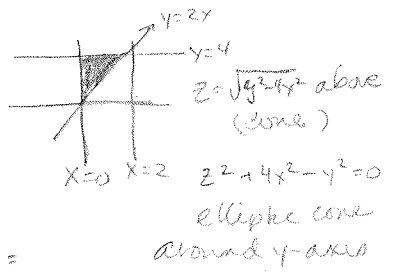 y=2x
y=4
z=√y²-4x² above
(cone)
x=0 x=2
z²+4x²-y²=0
elliptic cone
around y-axis
=